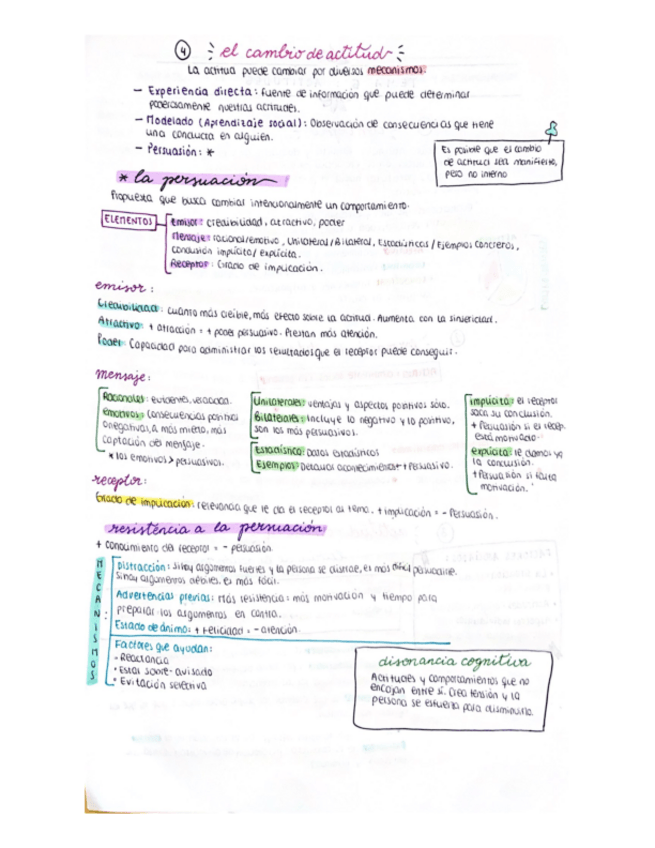 ④ el cambio de actitud
La actitud puede cambiar por diversos mecanismos:
– Experiencia directa: Fuente de información que puede determinar
poderosamente nuestras actitudes.
– Modelado (Aprendizaje social): Observación de consecuencias que tiene
una conducta en alguien.
– Persuasión: *
Es posible que el cambio
de actitud sea manifiesto,
pero no interno
* la persuación
Propuesta que busca cambiar intencionalmente un comportamiento.
ELEMENTOS
Emisor: credibilidad, atractivo, poder
Mensaje: racional/emotivo, Unilateral/Bilateral, Estadísticas/Ejemplos concretos,
conclusión implícita/explícita.
Receptor: Grado de implicación.
emisor:
Credibilidad: cuanto más creíble, más efecto sobre la actitud. Aumenta con la sinceridad.
Atractivo: + atracción = + poder persuasivo. Prestan más atención.
Poder: Capacidad para administrar los resultados que el receptor puede conseguir.
mensaje:
Racionales: evidentes,
emotivos: Consecuencias positivas
o negativas, a más miedo, más
captación del mensaje.
* los emotivos > persuasivos.
Unilaterales: ventajas y aspectos positivos sólo.
Bilaterales: Incluye lo negativo y lo positivo,
son los más persuasivos.
Estadística: Datos estadísticos
Ejemplos: Detallas acontecimiento + persuasivo.
implícita: el receptor
saca su conclusión.
+ Persuasión si el recep.
está motivado
explícita: le damos ya
la conclusión.
+ Persuasión si falta
motivación.
receptor:
Grado de implicación: relevancia que le da el receptor al tema. + implicación = - Persuasión.
resistencia a la persuación
+ conocimiento del receptor = - persuasión.
MECANISMOS:
Distracción: Si hay argumentos fuertes y la persona se distrae, es más difícil persuadirle.
Si hay argumentos débiles, es más fácil.
Advertencias previas: Más resistencia: más motivación y tiempo para
preparar los argumentos en contra.
Estado de ánimo: + Felicidad = - atención.
Factores que ayudan:
- Reactancia
- Estar sobre-avisado
- Evitación selectiva
disonancia cognitiva
Actitudes y comportamientos que no
encajan entre sí. Crea tensión y la
persona se esfuerza para disminuirla.